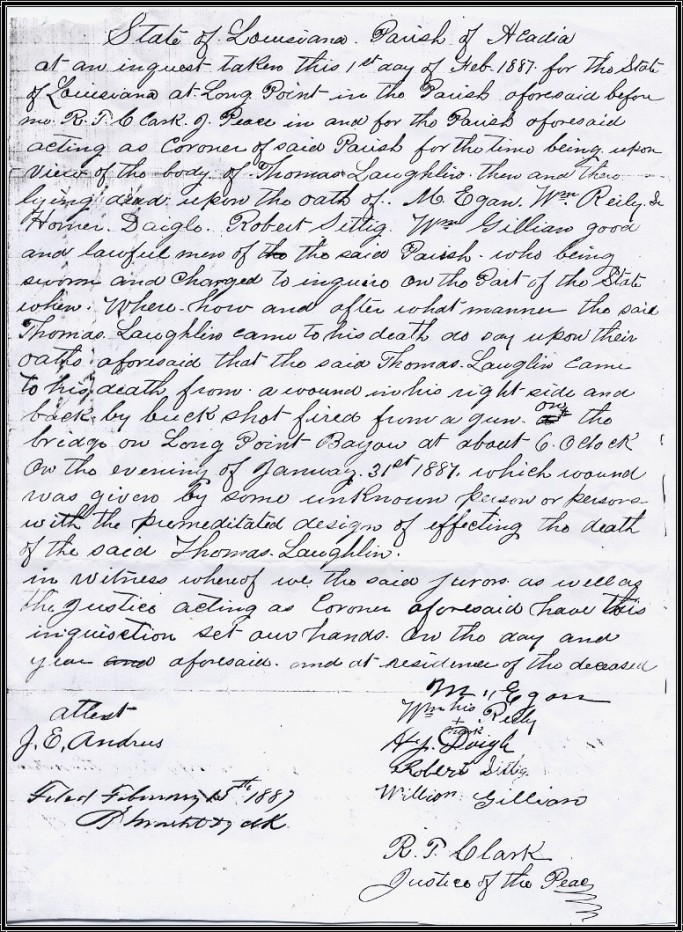 State of Louisiana. Parish of Acadia
at an inquest taken this 1st day of Feb. 1887. for the State
of Louisiana at Long Point in the Parish aforesaid before
me R. T. Clark J. Peace in and for the Parish aforesaid
acting as Coroner of said Parish for the time being upon
view of the body of Thomas Laughlin. then and there
lying dead upon the oath of. M. Egan. Wm Reily. Sr
Homer. Daigle. Robert Sittig. Wm Gillian good
and lawful men of the the said Parish. who being
sworn and charged to inquire on the Part of the State
when. Where. how and after what manner the said
Thomas Laughlin came to his death do say upon their
oaths aforesaid that the said Thomas. Lauglin came
to his death from a wound in his right side and
back by buck shot fired from a gun. on the
bridge on Long Point Bayou at about 6. Oclock
On the evening of January. 31st 1887. which wound
was given by some unknown person or persons
with the premeditated design of effecting the death
of the said Thomas. Laughlin.
in witness whereof we the said jurors. as well as
the Justice acting as Coroner aforesaid have this
inquisction set our hands. on the day and
year and aforesaid. and at residence of the deceased
M. Egan
Wm his Reily
+
mark
attest
J. E. Andrus
H. J. Daigle
Robert Sittig.
William Gillian
Filed February 15th 1887
R. T. Clark
Justice of the Peace